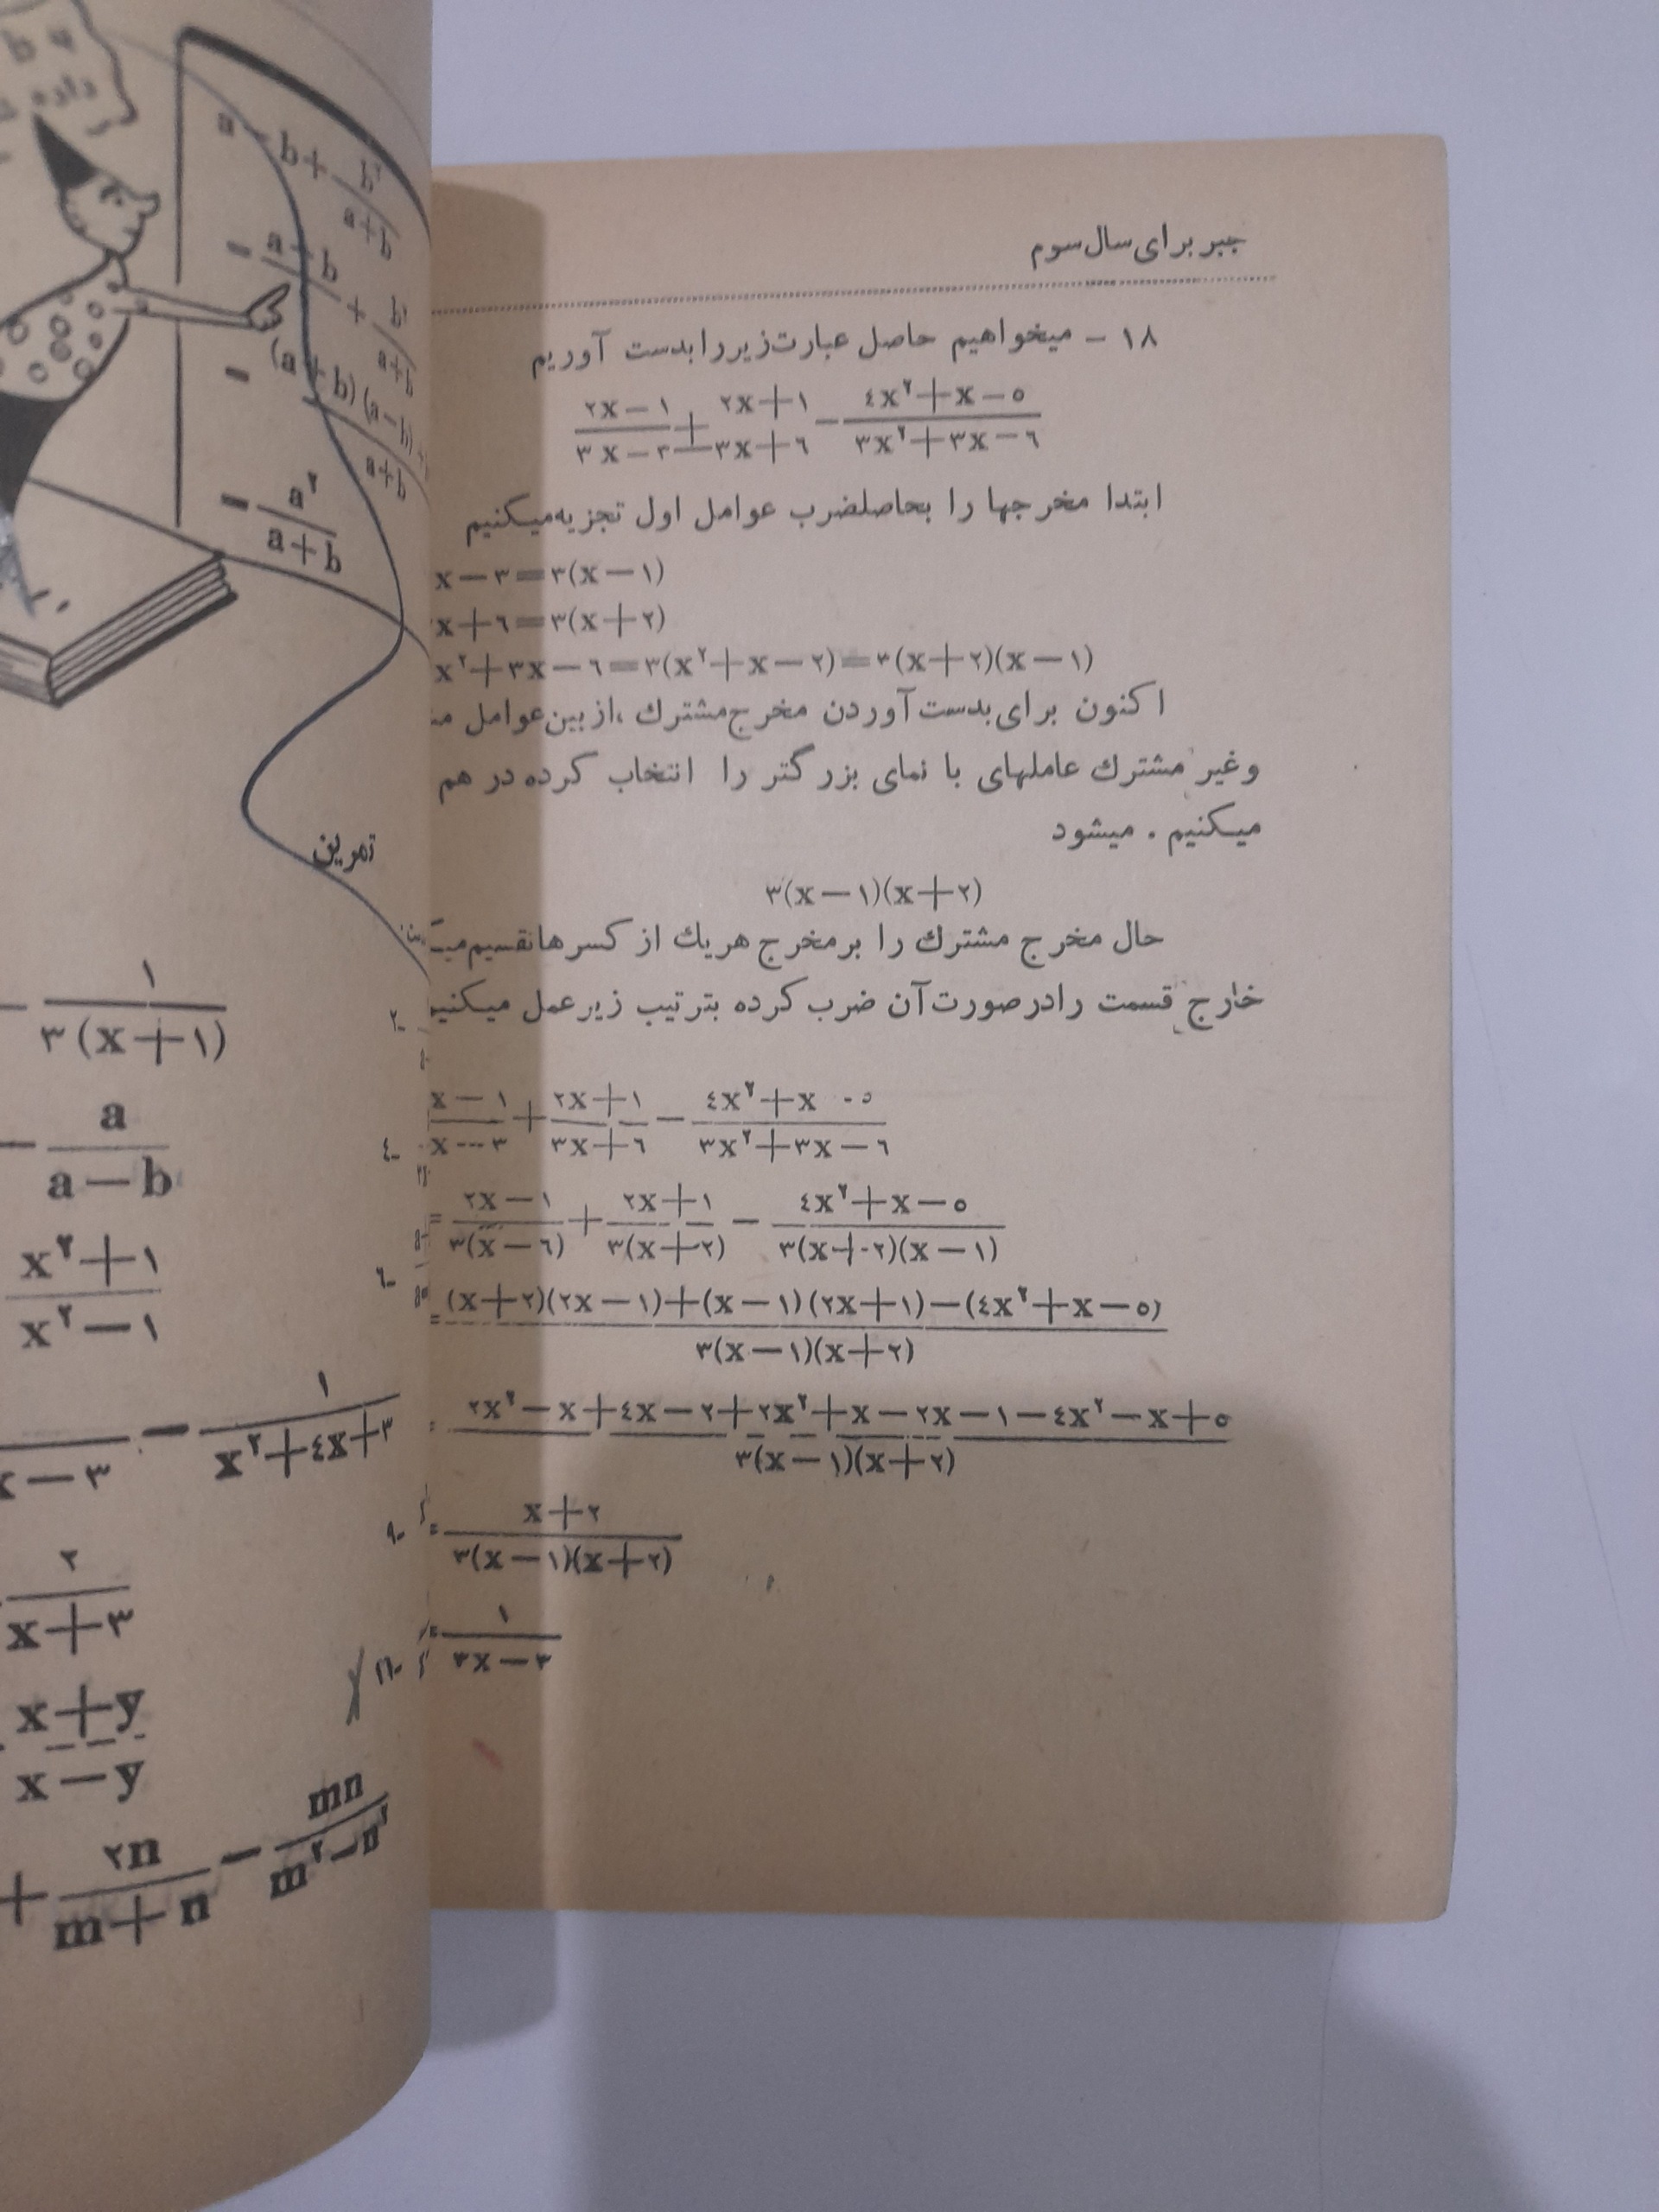 جبر برای سال سوم
۱۸ - میخواهیم حاصل عبارت زیر را بدست آوریم
(۲x-۱)/(۳x-۳) + (۲x+۱)/(۳x+٦) - (٤x²+x-٥)/(۳x²+۳x-٦)
ابتدا مخرجها را بحاصلضرب عوامل اول تجزیه میکنیم
x-۳=۳(x-۱)
x+٦=۳(x+۲)
x²+۳x-٦=۳(x²+x-۲)=۳(x+۲)(x-۱)
اکنون برای بدست آوردن مخرج مشترك ، از بین عوامل
وغیر مشترك عاملهای با نمای بزرگتر را انتخاب کرده در هم
میکنیم . میشود
۳(x-۱)(x+۲)
حال مخرج مشترك را بر مخرج هریك از کسرها تقسیم
خارج قسمت را در صورت آن ضرب کرده بترتیب زیر عمل میکنیم
(x-۱)/(x-۳) + (۲x+۱)/(۳x+٦) - (٤x²+x-٥)/(۳x²+۳x-٦)
= (۲x-۱)/(۳(x-٦)) + (۲x+۱)/(۳(x+۲)) - (٤x²+x-٥)/(۳(x+۲)(x-۱))
= ((x+۲)(۲x-۱)+(x-۱)(۲x+۱)-(٤x²+x-٥))/(۳(x-۱)(x+۲))
= (۲x²-x+٤x-۲+۲x²+x-۲x-۱-٤x²-x+٥)/(۳(x-۱)(x+۲))
= (x+۲)/(۳(x-۱)(x+۲))
= ۱/(۳x-۳)
b
داده
a-b+ b²/(a+b)
- (a+b)/ + b²/(a+b)
- (a+b)(a-b)/(a+b)
- a²/(a+b)
تمرین
- ۱/(۳(x+۱))
۲-
- a/(a-b)
٤-
(x²+۱)/(x²-۱)
٦-
x-۳ - ۱/(x²+٤x+۳)
۲/(x+۳)
(x+y)/(x-y)
+ ۲n/(m+n) - mn/(m²-n²)